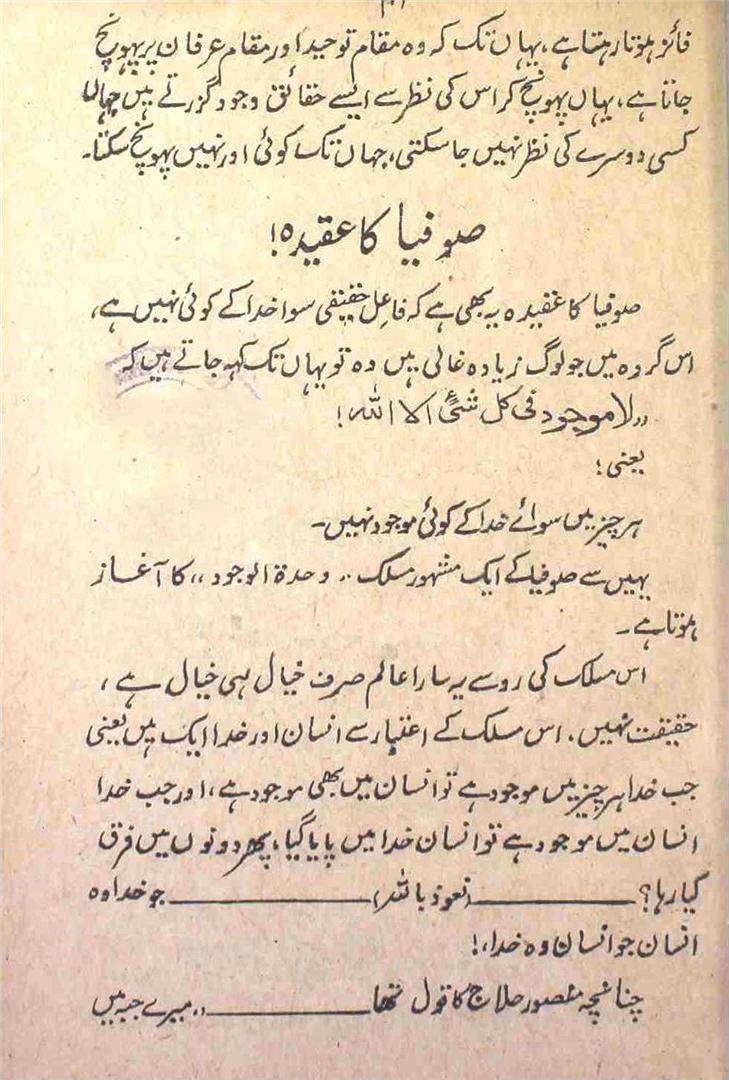 فائز ہوتا رہتا ہے، یہاں تک کہ وہ مقام توحید اور مقام عرفان پر پہونچ
جاتا ہے، یہاں پہونچ کر اس کی نظر سے ایسے حقائق وجود گزرتے ہیں جہاں
کسی دوسرے کی نظر نہیں جا سکتی، جہاں تک کوئی اور نہیں پہونچ سکتا۔
صوفیا کا عقیدہ!
صوفیا کا عقیدہ یہ بھی ہے کہ فاعل حقیقی سوا خدا کے کوئی نہیں ہے،
اس گروہ میں جو لوگ زیادہ غالی ہیں وہ تو یہاں تک کہہ جاتے ہیں کہ
،،لا موجود فی کل شئیٍ الا اللہ!
یعنی؛
ہر چیز میں سوائے خدا کے کوئی موجود نہیں۔
یہیں سے صوفیا کے ایک مشہور مسلک ،،وحدۃ الوجود،، کا آغاز
ہوتا ہے۔
اس مسلک کی رو سے یہ سارا عالم صرف خیال ہی خیال ہے،
حقیقت نہیں، اس مسلک کے اعتبار سے انسان اور خدا ایک ہیں یعنی
جب خدا ہر چیز میں موجود ہے تو انسان میں بھی موجود ہے، اور جب خدا
انسان میں موجود ہے تو انسان خدا میں پایا گیا، پھر دونوں میں فرق
کیا رہا؟ ــــــــــ (نعوذ باللہ) ــــــــــ جو خدا وہ
انسان جو انسان وہ خدا،!
چنانچہ منصور حلاج کا قول تھا ــــــــــ ،،میرے جبہ میں